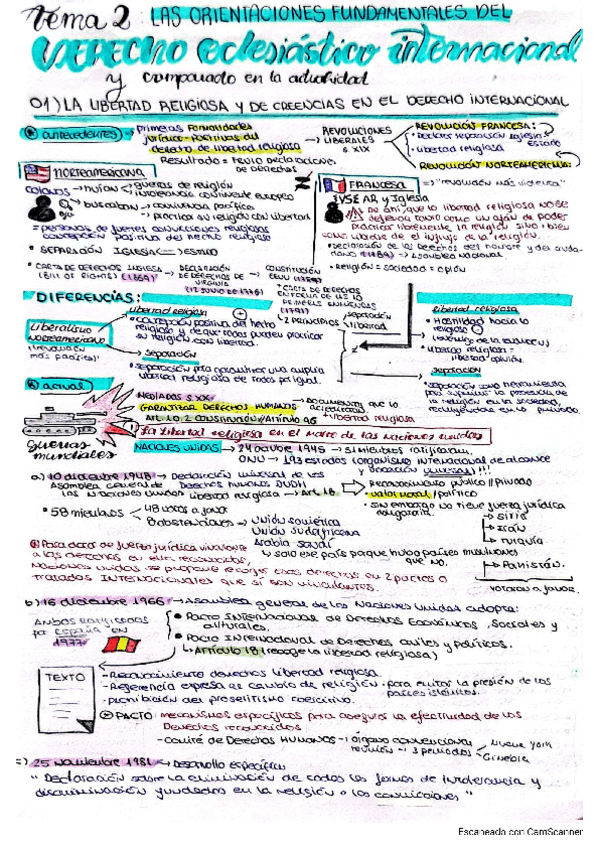 Tema 2 : LAS ORIENTACIONES FUNDAMENTALES DEL
DERECHO eclesiástico internacional
y comparado en la actualidad
01) LA LIBERTAD RELIGIOSA Y DE CREENCIAS EN EL DERECHO INTERNACIONAL
antecedentes → primeras formalidades
jurídico-positivas del
derecho de libertad religiosa
Resultado = texto declaraciones
de derechos
REVOLUCIONES
LIBERALES
S XIX
REVOLUCIÓN FRANCESA:
iglesia
estado
• libertad religiosa
REVOLUCIÓN NORTEAMERICANA:
NORTEAMERICANA
colonos → huían guerras de religión
intolerancia continente europeo
→ buscaban → convivencia pacífica
→ practicar su religión con libertad
= personas de fuertes convicciones religiosas
concepción positiva del hecho religioso
• SEPARACIÓN IGLESIA ← → ESTADO
• CARTA DE DERECHOS INGLESA
(BILL OF RIGHTS) (1689)
→ DECLARACIÓN
DE DERECHOS DE
VIRGINIA
(12 JUNIO DE 1776)
→ CONSTITUCIÓN
EEUU (1787)
(1791)
≠
FRANCESA => "revolución más violenta"
AR y Iglesia
practicar libremente la religión sino + bien
como librarse de el influjo de la religión.
• declaración de los derechos del hombre y del ciuda-
dano (1789) → Asamblea nacional
• religión = sociedad = opción
DIFERENCIAS:
Liberalismo
norteamericano
(revolución
más pacífica)
libertad religiosa +
• concepción positiva del hecho
religioso → de que todos pueden practicar
su religión con libertad.
separación
• separación para garantizar una amplia
libertad religiosa de todos por igual.
2 PRINCIPIOS
separación
libertad
libertad religiosa
• Hostilidad hacia lo
religioso
• libertad religiosa =
libertad opinión.
separación
• separación como herramienta
para suprimir la presencia de
la religión en la sociedad,
recluyéndola en lo privado.
actual
guerras
mundiales
MEDIADOS S.XX
GARANTIZAR DERECHOS HUMANOS → documentos que lo
ART. 10.2 CONSTITUCIÓN/Artículo 96
libertad religiosa
1) La libertad religiosa en el marco de las naciones unidas
NACIONES UNIDAS → 24 octubre 1945 → 51 miembros ratificaron.
ONU → 193 estados (organismo INTERNACIONAL de alcance
y vocación UNIVERSAL)!!!
a) 10 diciembre 1948 → Declaración universal de los
Asamblea General de Derechos humanos DUDH
las Naciones Unidas libertad religiosa → Art. 18
Reconocimiento público/privado
valor moral/político
• 58 miembros 48 votos a favor
8 abstenciones → Unión soviética
Unión sudafricana
Arabia Saudí
↳ solo ese país porque hubo países musulmanes
que no.
• Sin embargo no tiene fuerza jurídica
obligatoria.
→ Siria
→ Irán
→ Turquía
→ Pakistán.
votaron a favor.
Para dotar de fuerza jurídica vinculante
a los derechos en ella reconocidos,
Naciones unidas se propone recoger esos derechos en 2 pactos o
tratados INTERNACIONALES que sí son vinculantes.
b) 16 diciembre 1966 → Asamblea general de las Naciones Unidas adopta:
• Pacto INTERNACIONAL de Derechos Económicos, Sociales y
culturales.
• Pacto INTERNACIONAL de Derechos civiles y políticos.
↳ Artículo 18 (recoge la libertad religiosa)
Ambos ratificados
por ESPAÑA en
1977
TEXTO
- Reconocimiento derechos libertad religiosa.
- Referencia expresa es cambio de religión - para evitar la presión de los
países islámicos.
- prohibición del proselitismo coercitivo.
PACTO: mecanismos específicos para asegurar la efectividad de los
Derechos reconocidos.
- Comité de Derechos HUMANOS → órgano convencional
reunión - 3 periodos Nueva York
Ginebra
=) 25 noviembre 1981 ↳ Desarrollo específico
" Declaración sobre la eliminación de todas las formas de intolerancia y
discriminación fundadas en la religión o las convicciones "
Escaneado con CamScanner